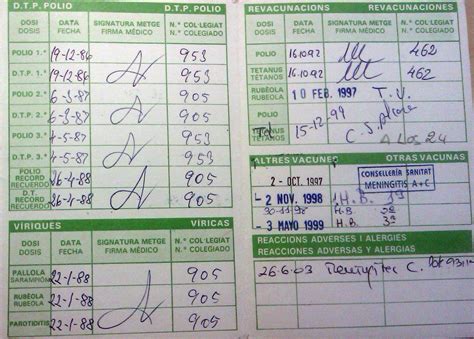 D.T.P. POLIO
DOSI DOSIS DATA FECHA SIGNATURA METGE FIRMA MÉDICO N.º COL·LEGIAT N.º COLEGIADO
POLIO 1.ª 19-12-86 953
D.T.P. 1.ª 19-12-86 953
POLIO 2.ª 6-3-87 905
D.T.P. 2.ª 6-3-87 905
POLIO 3.ª 4-5-87 953
D.T.P. 3.ª 4-5-87 953
POLIO RECORD RECUERDO 26-4-88 905
D.T. RECORD RECUERDO 26-4-88 905
VÍRIQUES VÍRICAS
DOSI DOSIS DATA FECHA SIGNATURA METGE FIRMA MÉDICO N.º COL·LEGIAT N.º COLEGIADO
PALLOLA SARAMPIÓN 22-1-88 905
RUBÈOLA RUBÉOLA 22-1-88 905
PAROTIDITIS 22-1-88 905
REVACUNACIONS REVACUNACIONES
DOSI DOSIS DATA FECHA SIGNATURA METGE FIRMA MÉDICO N.º COL·LEGIAT N.º COLEGIADO
POLIO 16.10.92 462
TETANUS TÉTANOS 16.10.92 462
RUBÈOLA RUBÉOLA 10 FEB. 1997 T.V.
TETANUS TÉTANOS Td 15-12-99 C.S.
A LOS 24
ALTRES VACUNES OTRAS VACUNAS
2 - OCT. 1997 CONSELLERÍA SANITAT MENINGITIS A+C
- 2 NOV. 1998 H.B. 1ª
30-11-98 H.B. 2ª
- 3 MAYO 1999 H.B. 3ª
REACCIONS ADVERSES I ALERGIES
REACCIONES ADVERSAS Y ALERGIAS
26-6-03 C.